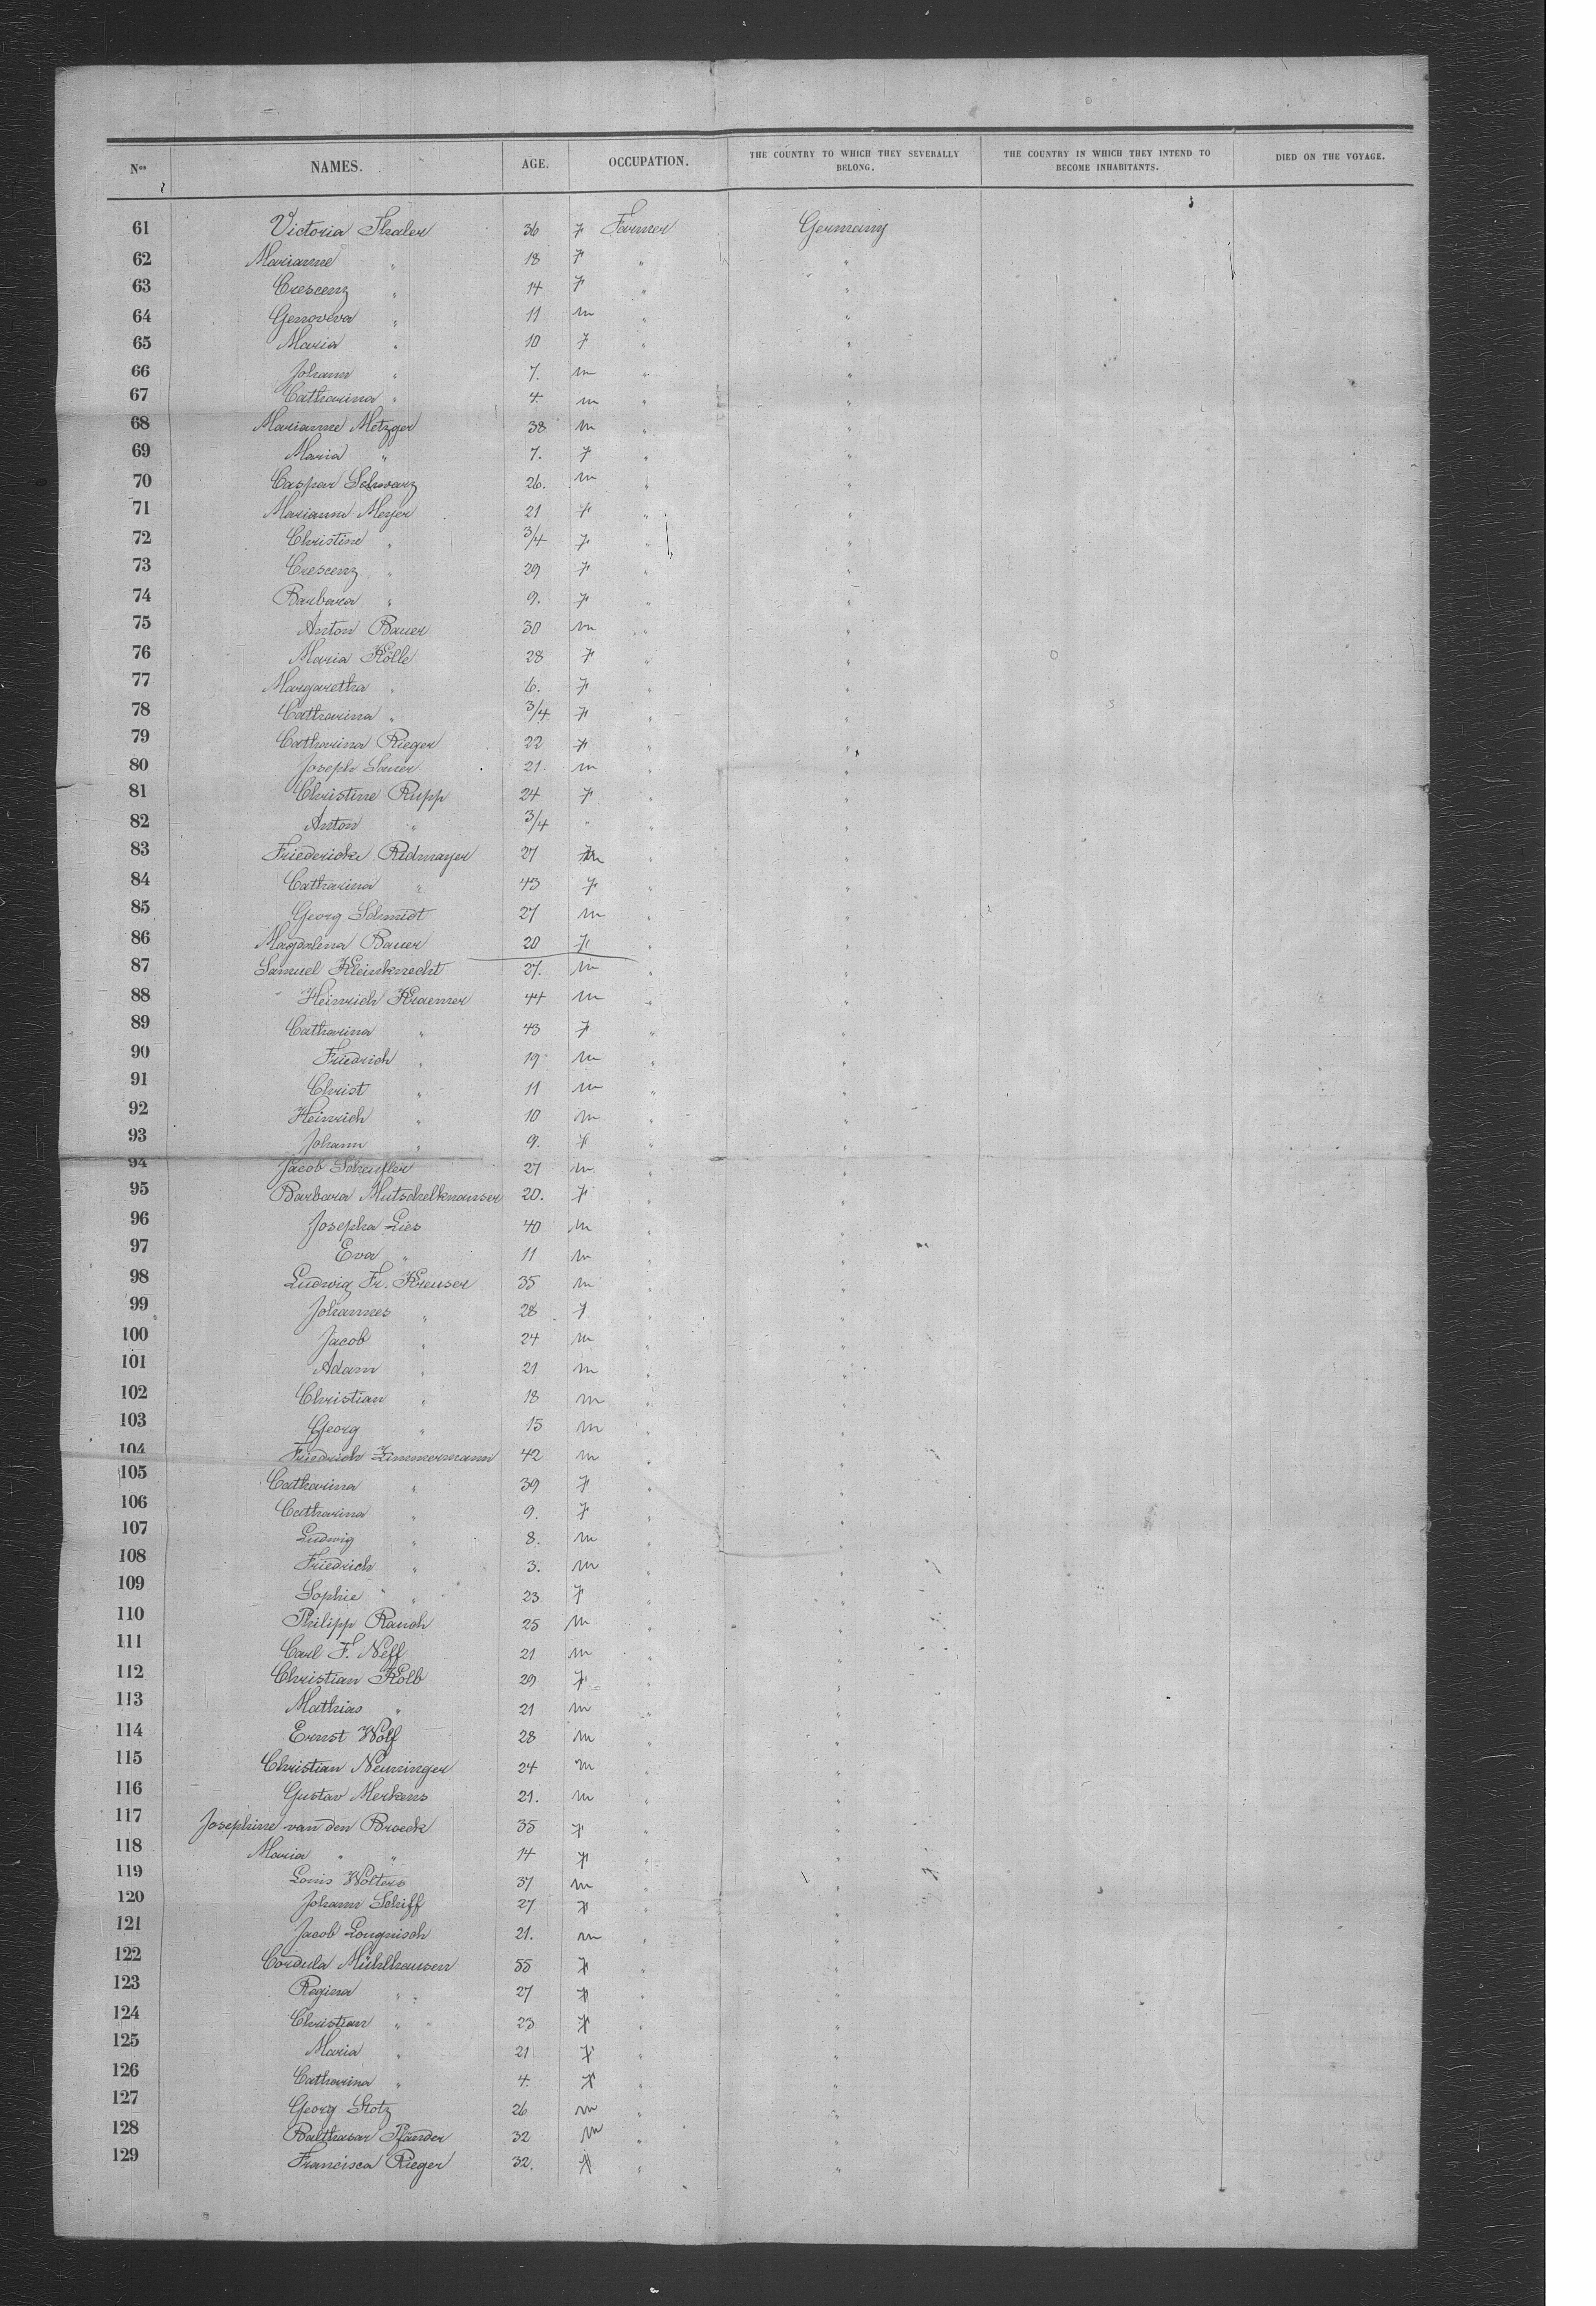 Nos NAMES. AGE. OCCUPATION. THE COUNTRY TO WHICH THEY SEVERALLY BELONG. THE COUNTRY IN WHICH THEY INTEND TO BECOME INHABITANTS. DIED ON THE VOYAGE.
61 Victoria Thaler 36 F Farmer Germany
62 Marianne " 18 F " "
63 Crescenz " 14 F " "
64 Genoveva " 11 m " "
65 Maria " 10 F " "
66 Johann " 7. m " "
67 Catharina " 4. m " "
68 Marianne Metzger 38 m " "
69 Maria " 7. F " "
70 Caspar Schwarz 26. m " "
71 Mariann Meyer 21 F " "
72 Christine " 3/4 F " "
73 Crescenz " 29 F " "
74 Barbara " 9. F " "
75 Anton Bauer 30 m " "
76 Maria Kölle 28 F " "
77 Margaretha " 6. F " "
78 Catharina " 3/4 F " "
79 Catharina Rieger 22 F " "
80 Joseph Sauer 21 m " "
81 Christine Rupp 24 F " "
82 Anton " 3/4 " " "
83 Friedericke Ridmayer 27 m " "
84 Catharina " 43 F " "
85 Georg Schmidt 27 m " "
86 Magdalena Bauer 20 F " "
87 Samuel Kleinknecht 27. m " "
88 Heinrich Kraemer 44 m " "
89 Catharina " 43 F " "
90 Friedrich " 19 m " "
91 Christ " 11 m " "
92 Heinrich " 10 m " "
93 Johann " 9. F " "
94 Jacob Scheufler 27 m " "
95 Barbara Mutschelknauser 20. F " "
96 Josepha Lies 40 m " "
97 Eva " 11 m " "
98 Ludwig Fr. Kreuser 35 m " "
99 Johannes " 28 F " "
100 Jacob " 24 m " "
101 Adam " 21 m " "
102 Christian " 18 m " "
103 Georg " 15 m " "
104 Friedrich Zimmermann 42 m " "
105 Catharina " 39 F " "
106 Catharina " 9. F " "
107 Ludwig " 8. m " "
108 Friedrich " 3. m " "
109 Sophie " 23 F " "
110 Philipp Rauch 25 m " "
111 Carl F. Neff 21 m " "
112 Christian Kolb 29 F " "
113 Mathias " 21 m " "
114 Ernst Wolf 28 m " "
115 Christian Neuninger 24 m " "
116 Gustav Merkens 21. m " "
117 Josephine van den Broeck 35 F " "
118 Maria " " 14 F " "
119 Louis Wolters 37 m " "
120 Johann Schiff 27 F " "
121 Jacob Longnisch 21. m " "
122 Cordula Mühlhausen 55 F " "
123 Regina " 27 F " "
124 Christian " 23 F " "
125 Maria " 21 F " "
126 Catharina " 4. F " "
127 Georg Stotz 26 m " "
128 Balthasar Pfänder 32 m " "
129 Francisca Rieger 32. F " "